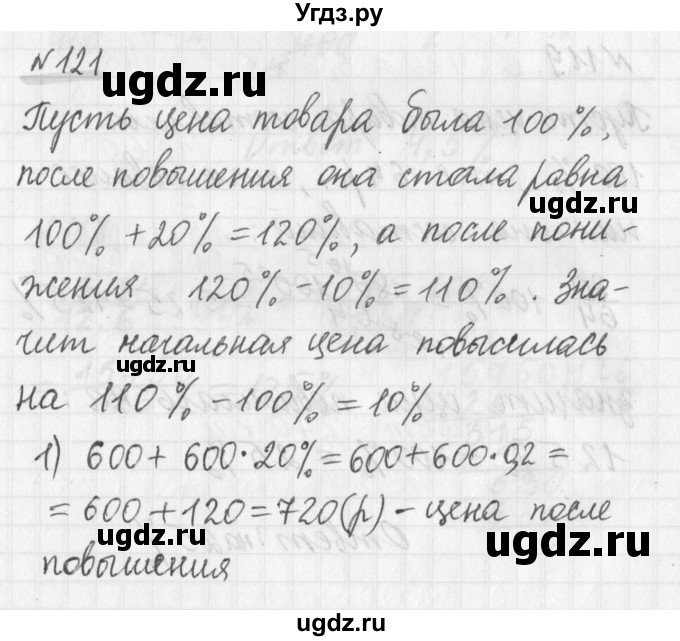 Угдз.ру
№121
ugdz.ru
Пусть цена товара была 100%,
после повышения она стала равна
ugdz.ru
100% + 20% = 120%, а после пони-
жения 120% - 10% = 110%. Зна-
ugdz.ru
чит начальная цена повысилась
на 110% - 100% = 10%
1) 600 + 600·20% = 600 + 600·0,2 =
= 600 + 120 = 720(р) - цена после
ugdz.ru ugdz.ru
повышения
ugdz.ru